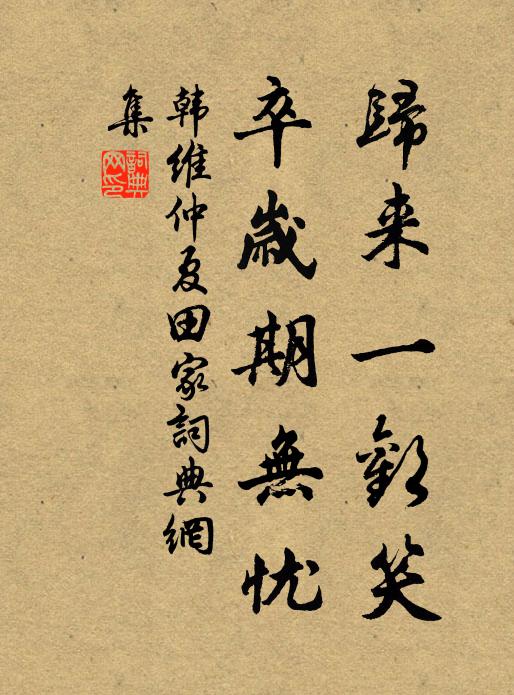 歸来一歡笑
卒歲期無忧
韩維仲夏田家詞典網
集
詞典
网印